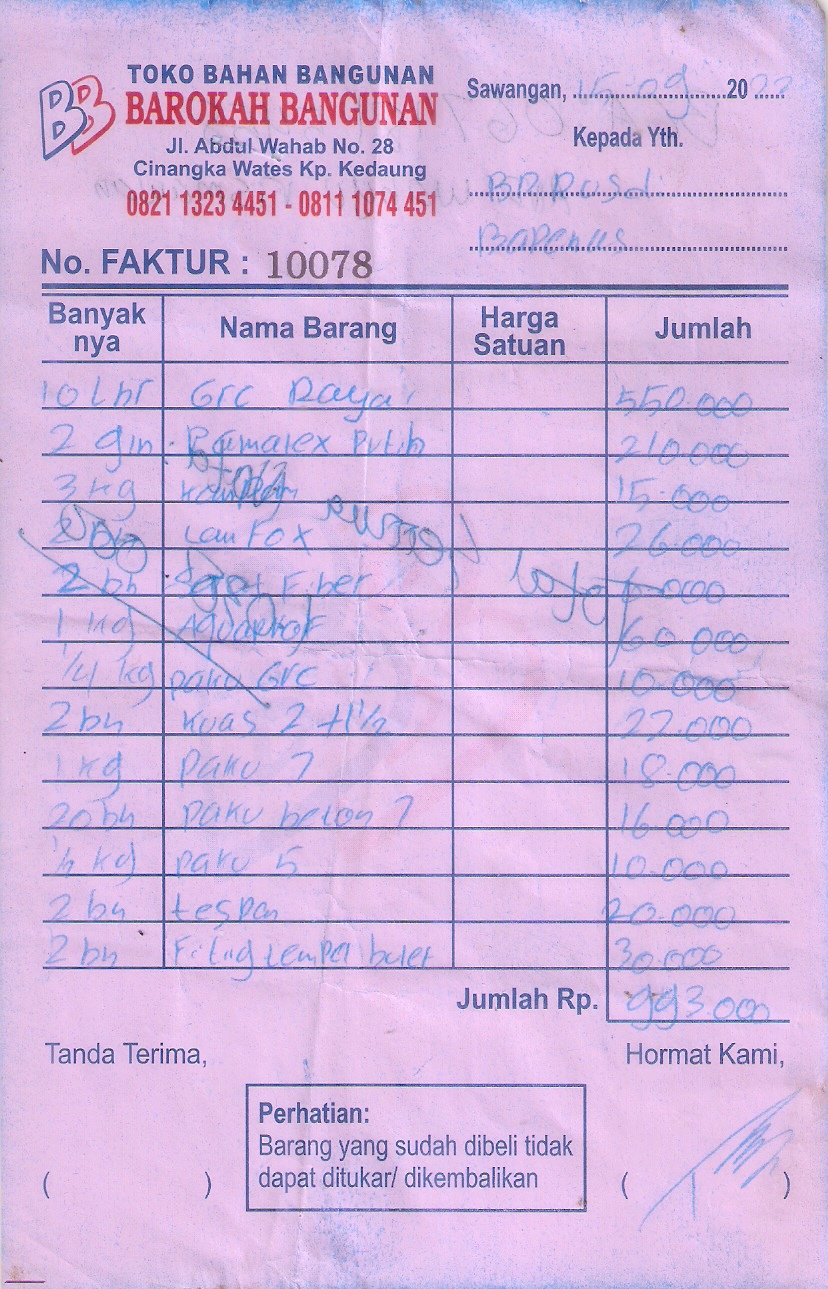 BB
TOKO BAHAN BANGUNAN
BAROKAH BANGUNAN
Jl. Abdul Wahab No. 28
Cinangka Wates Kp. Kedaung
0821 1323 4451 - 0811 1074 451
Sawangan, 15-09 2022
Kepada Yth.
BP Rosdi
Bapenus
No. FAKTUR : 10078
Banyak nya Nama Barang Harga Satuan Jumlah
10 Lbr Grc Raya 550.000
2 gln Pamalex Putih 210.000
3 kg 15.000
Lam Fox 26.000
2 bh Fiber 000
1 kg 60.000
1/4 kg paku Grc 10.000
2 bh kuas 2 + 1 1/2 22.000
1 kg paku 7 18.000
20 bh paku beton 7 16.000
1/2 kg paku 5 10.000
2 bh tespen 20.000
2 bh 30.000
Jumlah Rp. 993.000
Tanda Terima,
Hormat Kami,
Perhatian:
Barang yang sudah dibeli tidak
dapat ditukar/ dikembalikan
( )
( )